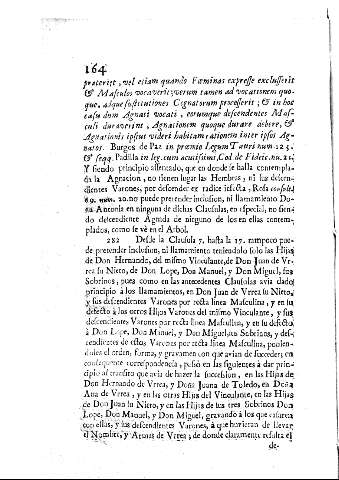 164
preterit, vel etiam quando Fœminas expresse exclusserit
& Masculos vocaverit; verum tamen ad vocationem quo-
que, atque sustitutiones Cognatorum processerit; & in hoc
casu dum Agnati vocati, eorumque descendentes Mas-
culi duraverint, Agnationem quoque durare debere, &
Agnationis ipsius videri habitam rationem inter ipsos Ag-
natos. Burgos de Paz in proemio Legum Tauri num. 125.
& seqq. Padilla in leg. cum acutissimi, Cod. de Fideic. nu. 21.
Y siendo principio assentado, que en donde se halla contempla-
da la Agnacion, no tienen lugar las Hembras, ni las descen-
dientes Varones, por descender ex radice infecta, Rosa consult.
69. num. 20. no puede pretender inclusion, ni llamamiento Do-
ña Antonia en ninguna de dichas Clausulas, en especial, no sien-
do descendiente Agnada de ninguno de los en ellas contem-
plados, como se vè en el Arbol.
282 Desde la Clausula 7. hasta la 17. tampoco pue-
de pretender inclusion, ni llamamiento teniendolo solo las Hijas
de Don Hernando, del mismo Vinculante, de Don Juan de Vr-
rea su Nieto, de Don Lope, Don Manuel, y Don Miguel, sus
Sobrinos, pues como en las antecedentes Clausulas avia dado
principio à los llamamientos, en Don Juan de Vrrea su Nieto,
y sus descendientes Varones por recta linea Masculina, y en su
defecto à los otros Hijos Varones del mismo Vinculante, y sus
descendientes Varones por recta linea Masculina, y en su defecto
à Don Lope, Don Manuel, y Don Miguel, sus Sobrinos, y des-
cendientes de estos, Varones por recta linea Masculina, ponien-
doles el orden, forma, y gravamen con que avian de succeder; en
consequente correspondencia, passò en las siguientes à dar prin-
cipio al transito que avia de hazer la succession, en las Hijas de
Don Hernando de Vrrea, y Doña Juana de Toledo, en Doña
Ana de Vrrea, y en las otras Hijas del Vinculante, en las Hijas
de Don Juan su Nieto, y en las Hijas de sus tres Sobrinos Don
Lope, Don Manuel, y Don Miguel, gravando à los que casaren
con ellas, y sus descendientes Varones, à que huvieran de llevar
el Nombre, y Armas de Vrrea; de donde claramente resulta el
de-